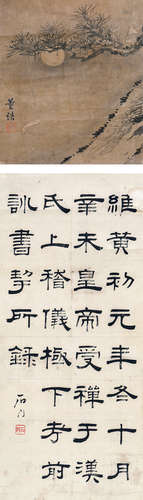 維黃初元年冬十月
辛未皇帝受禪于漢
氏上稽儀極下考前
訓書契所錄